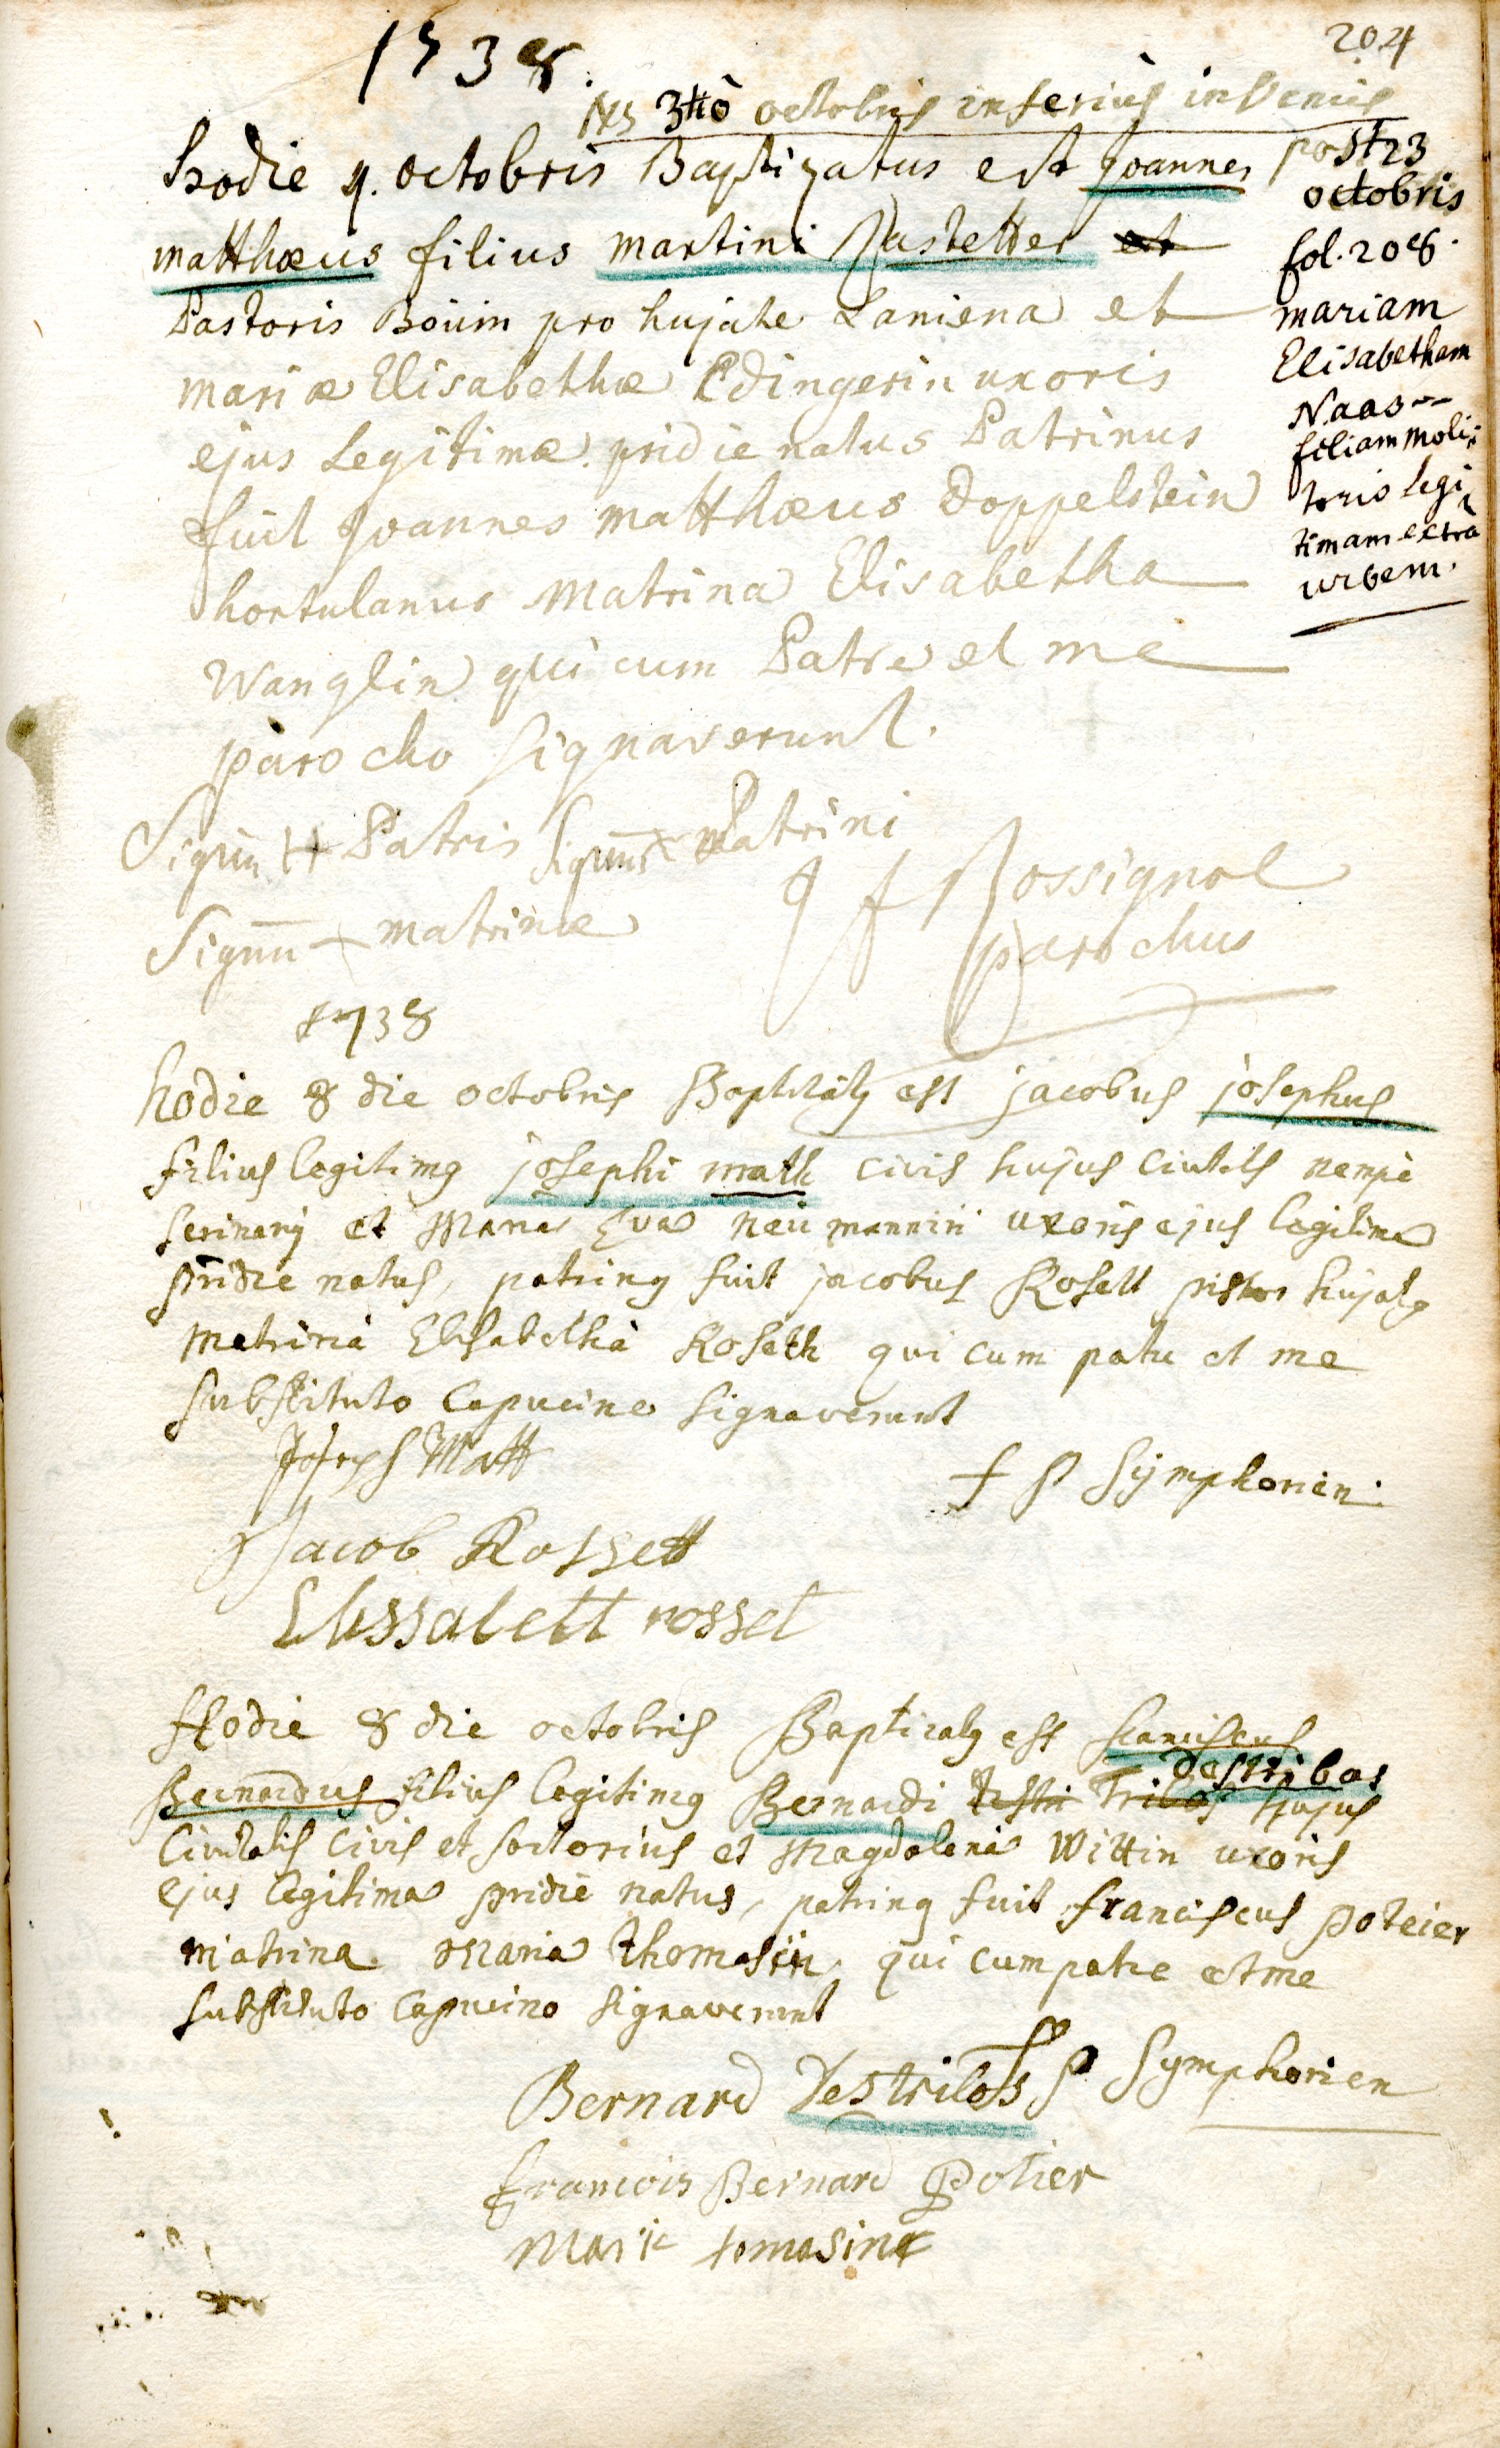 204
1738.
NB 3tiò octobris inferius invenies
post 23
octobris
fol. 208.
mariam
Elisabetham
Naas
filiam moli-
toris legi-
timam extra
urbem.
hodie 4. octobris Baptizatus est Joannes
matthæus filius martini Pastetter et
Pastoris Boüm pro hujate Laniena et
mariæ Elisabethæ Edingerin uxoris
ejus Legitimæ pridie natus Patrinus
fuit Joannes matthæus Doppelstein
hortulanus Matrina Elisabetha
Wanglin qui cum Patre et me
parocho signaverunt.
Signū Patris Signū Patrini
Signū matrinæ
J f Rossignol
parochus
1738
hodie 8 die octobris Baptizatq est jacobus josephus
filius legitimq josephi math civis hujus Civitatis nempè
et Maria Eva neümannin uxoris ejus legitima
pridie natus, patrinq fuit jacobus Rosett pistor hujatq
Matrina Elisabetha Roseth qui cum patre et me
substituto Capucino signaverunt
Joseph Matt
f P Symphorien.
Jacob Rossett
Elissabett rosset
Hodie 8 die octobris Baptizatq est franciscus
destribos
Bernardus filius legitimq Bernardi Testri Tribos hujus
Civitatis Civis et sartorius et Magdalena Wittin uxoris
ejus legitima pridie natus, patrinq fuit franciscus poteier
matrina maria thomasin, qui cum patre et me
substituto Capucino signaverunt
f P Symphorien
Bernard destribos
francois Bernard Potier
Marie tomasine